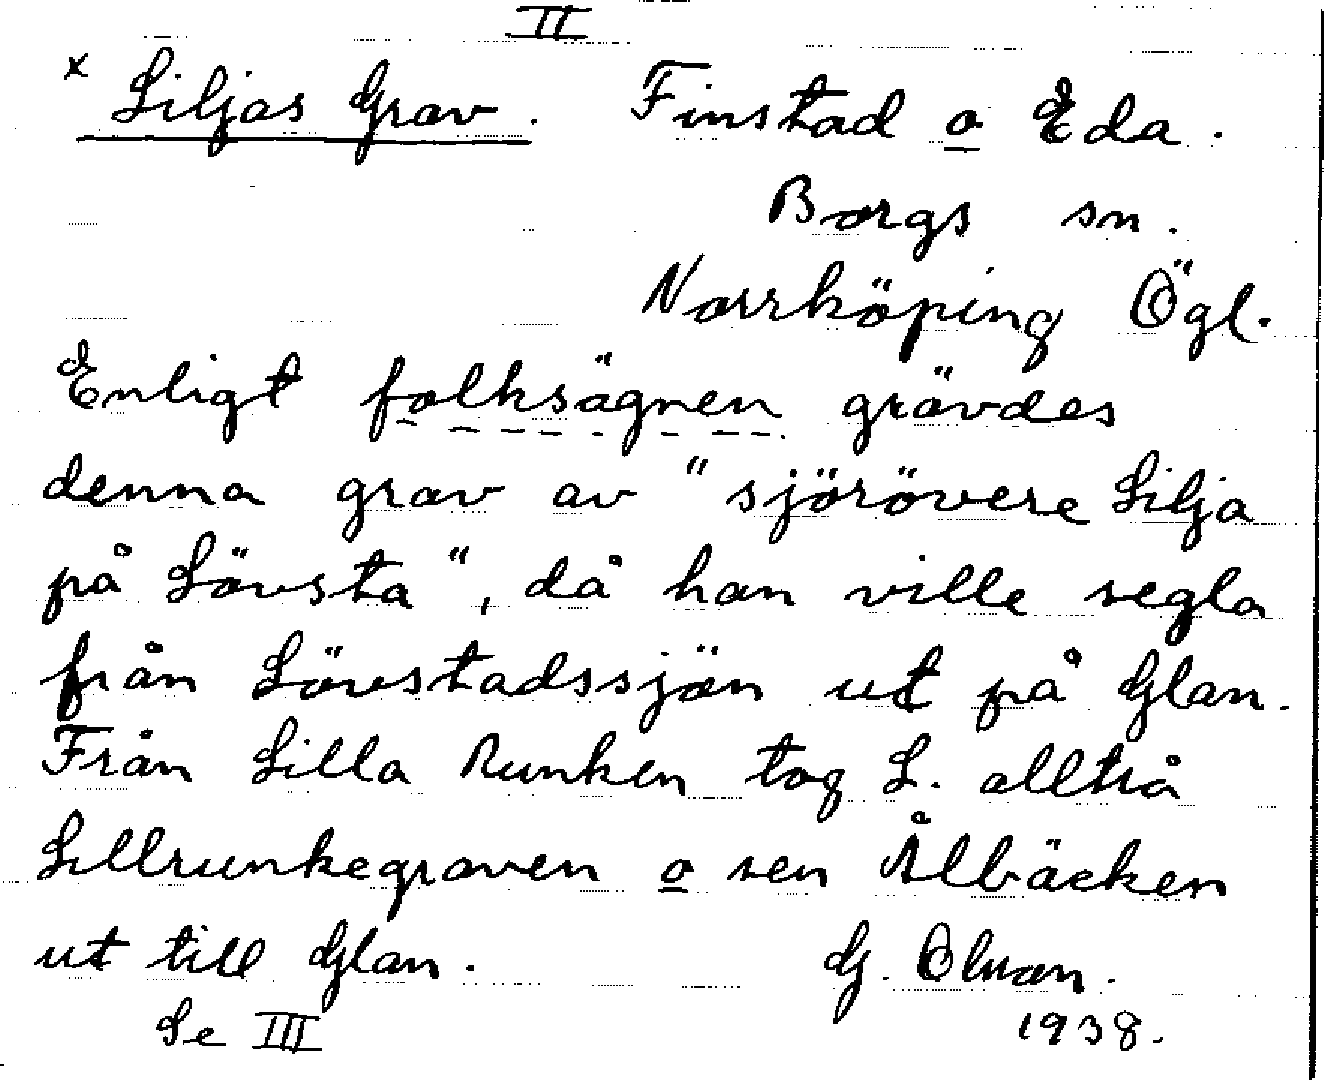 II
x Liljas Grav. Finstad o Eda.
Borgs sn.
Norrköping Ögl.
Enligt folksägnen grävdes
denna grav av "sjörövere Lilja
på Lövsta", då han ville segla
från Lövstadssjön ut på Glan.
Från Lilla Runken tog L. alltså
Lillrunkegraven o sen Ålbäcken
ut till Glan. G.
Se III 1938.